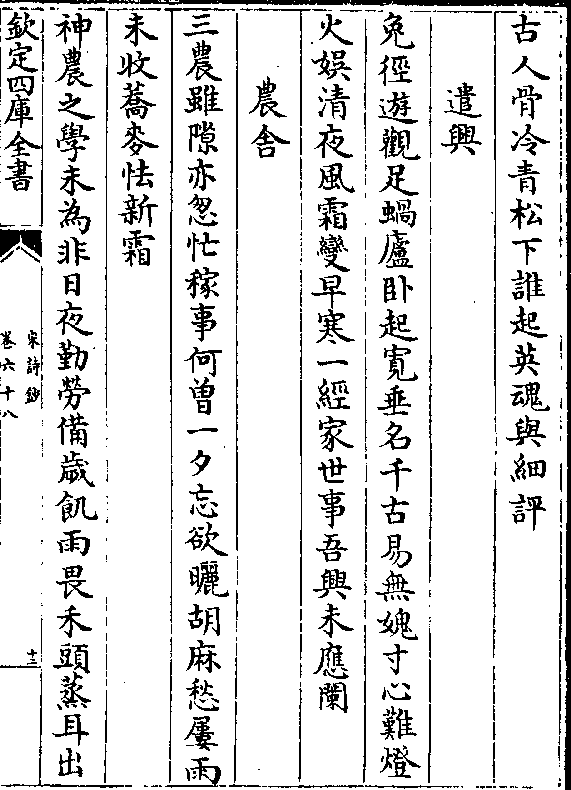 古人骨冷青松下誰起英魂與細評
遣興
兔徑遊觀足蝸廬卧起寛垂名千古易無媿寸心難燈
火娯清夜風霜變早寒一經家世事吾興未應闌
農舎
三農雖隙亦怱忙稼事何曽一夕忘欲曬胡麻愁屢雨
未收蕎麥怯新霜
神農之學未為非日夜勤勞備歳飢雨畏禾頭蒸耳出
欽定四庫全書
宋詩鈔
卷六十八
十三